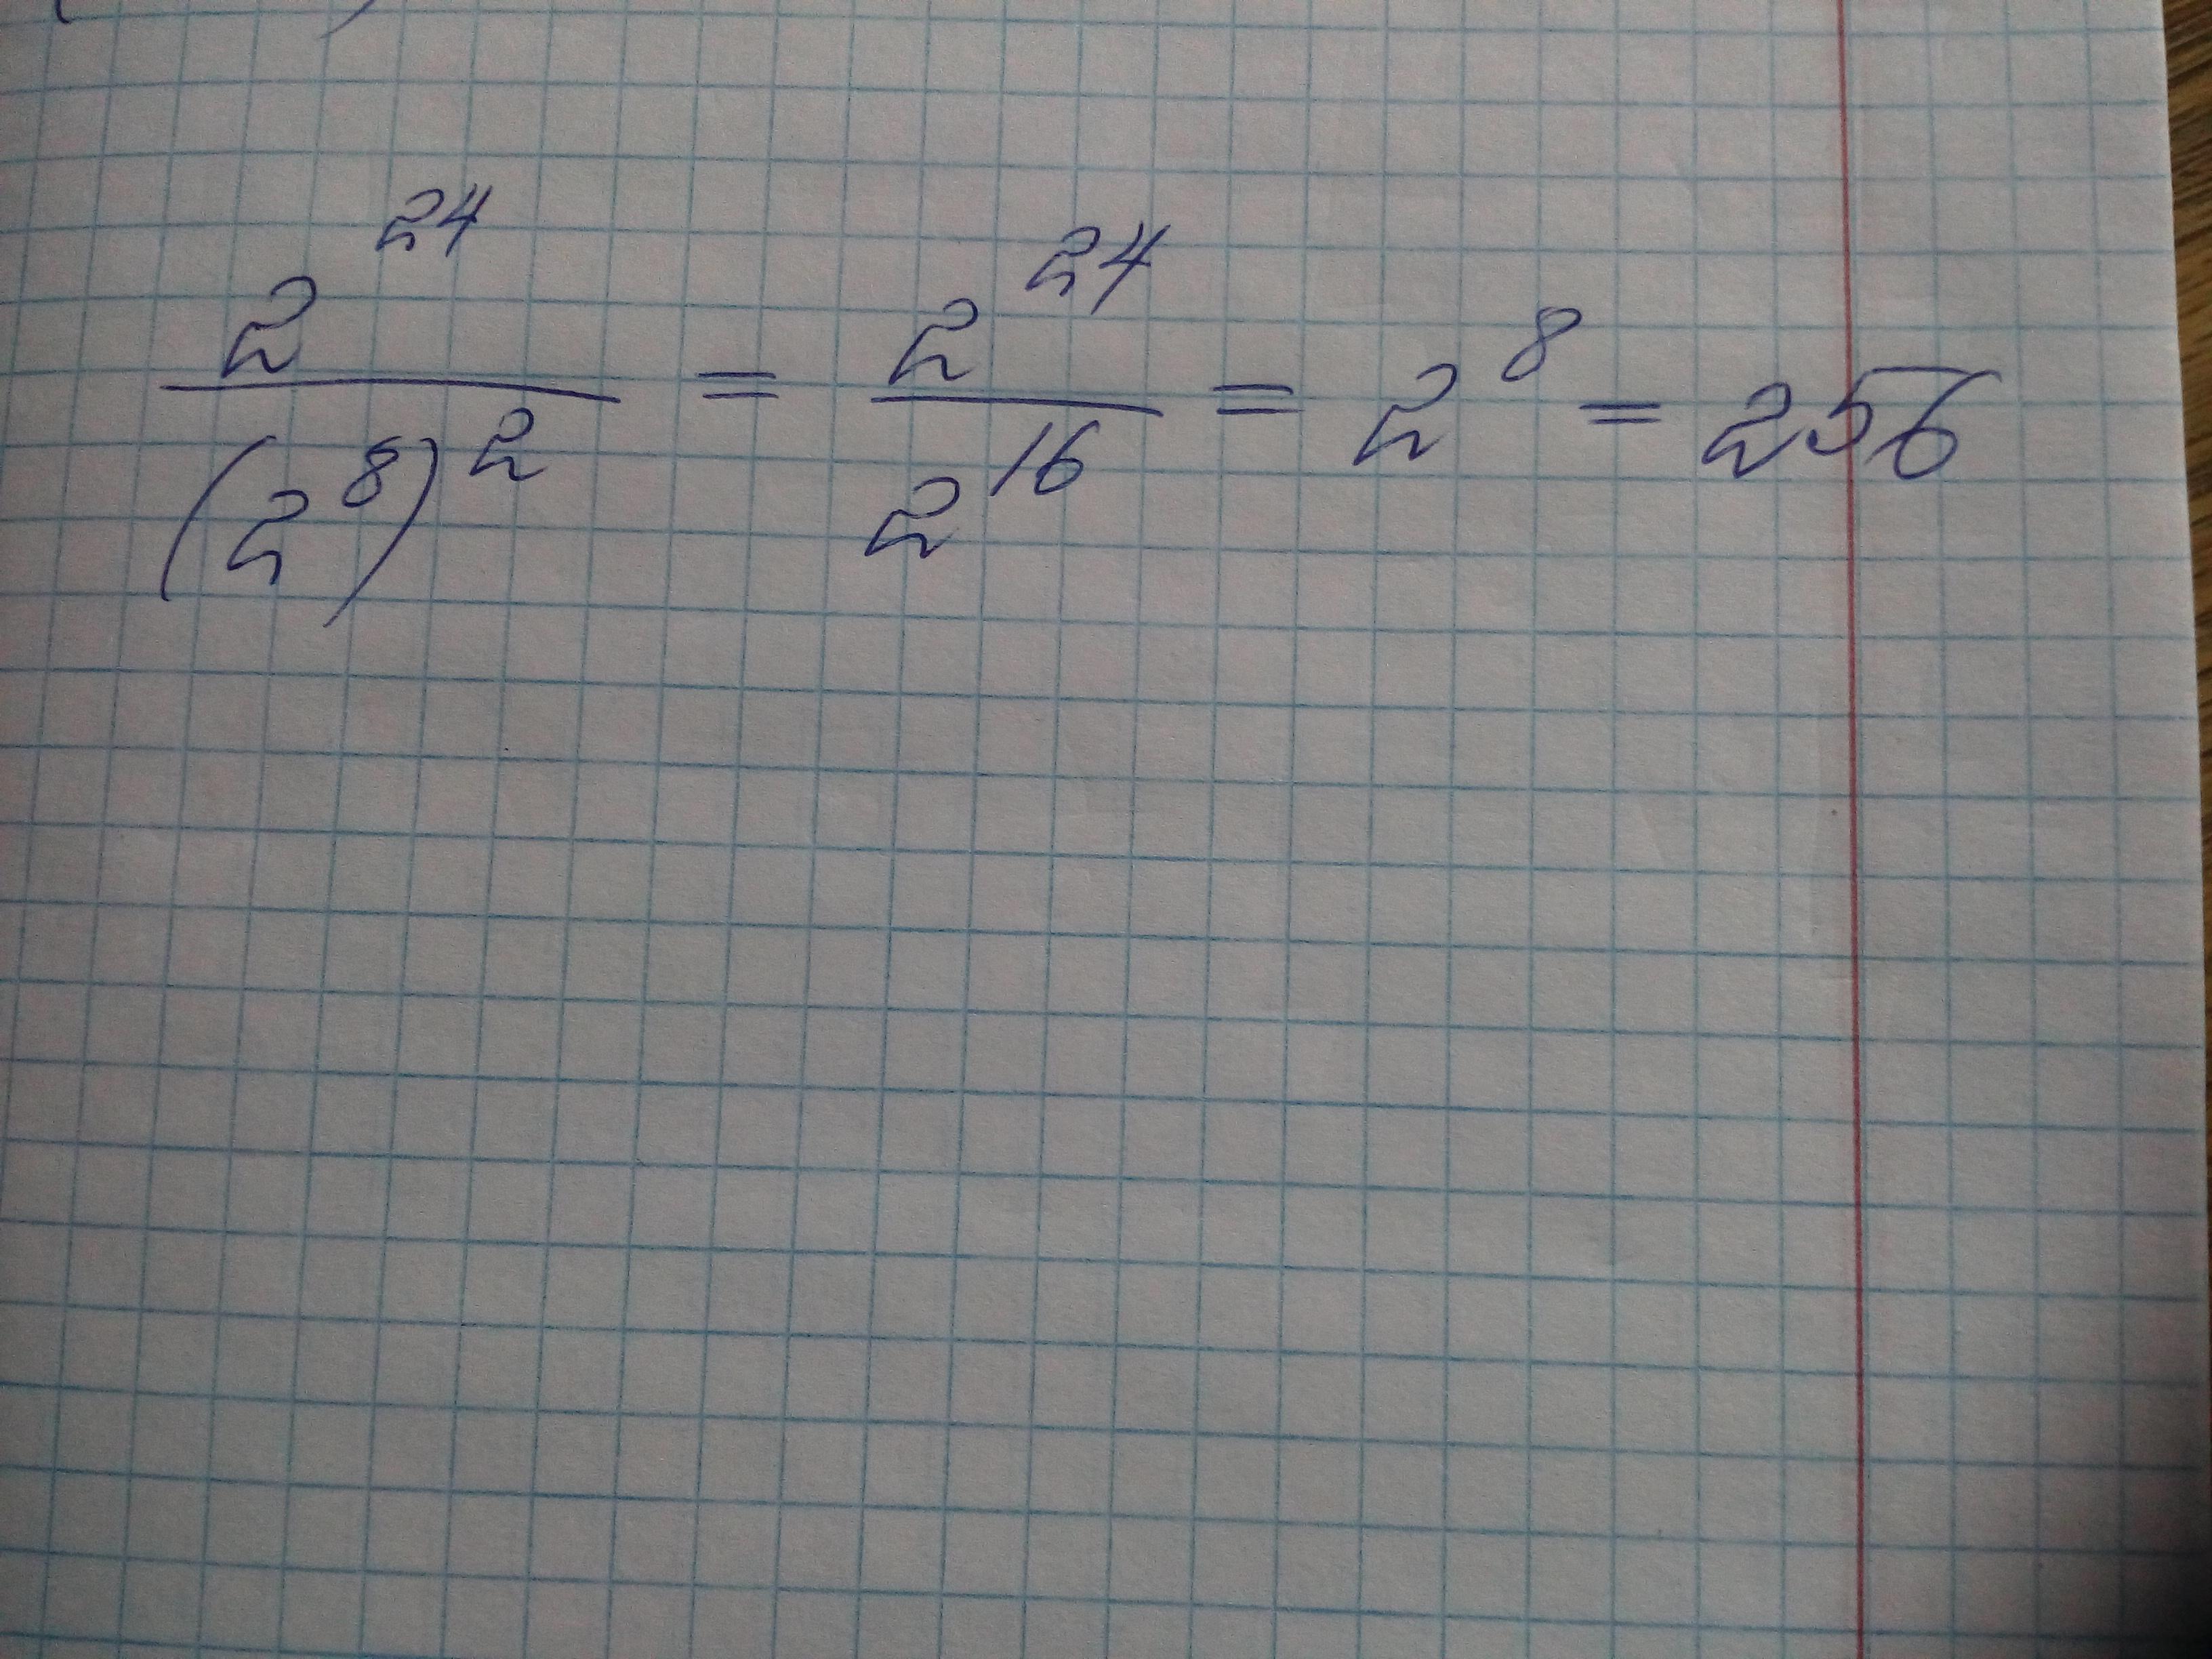 2^24 / (2^8)^2 = 2^24 / 2^16 = 2^8 = 256